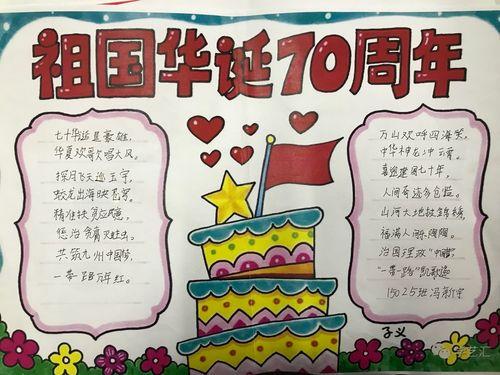 祖国华诞70周年
七十华诞显豪雄,
华夏欢歌唱大风。
探月飞天巡玉宇,
蛟龙出海映苍穹。
精准扶贫应民意,
惩治贪腐灭蛀虫。
共筑九州中国梦,
一带一路万年红。
万山欢呼四海笑,
中华神龙冲云霄。
喜迎建国七十年,
人间奇迹多
山河大地披锦绣,
福满人间
治国理政"中
"一带一路"凯歌
15025班
子义
学艺汇